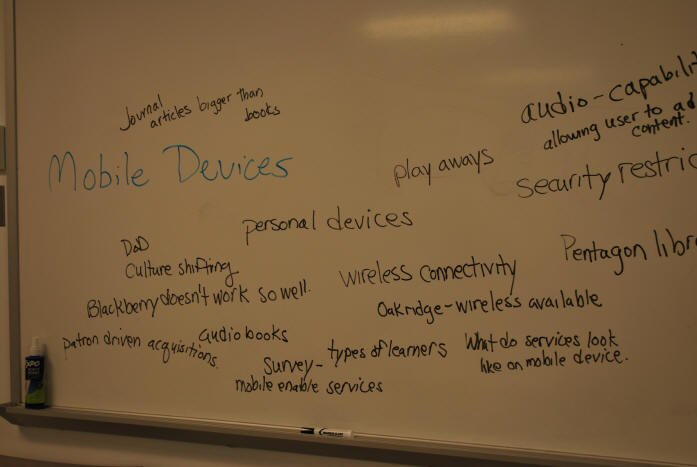 Journal
articles bigger than
books
audio-capabilit
allowing user to ad
content.
Mobile Devices
play aways
security restric
personal devices
DoD
Culture shifting
wireless connectivity
Pentagon libr
Blackberry doesn't work so well.
Oakridge-wireless available
patron driven acquisitions.
audiobooks
Survey - types of learners
What do services look
like on mobile device.
mobile enable services
XPO